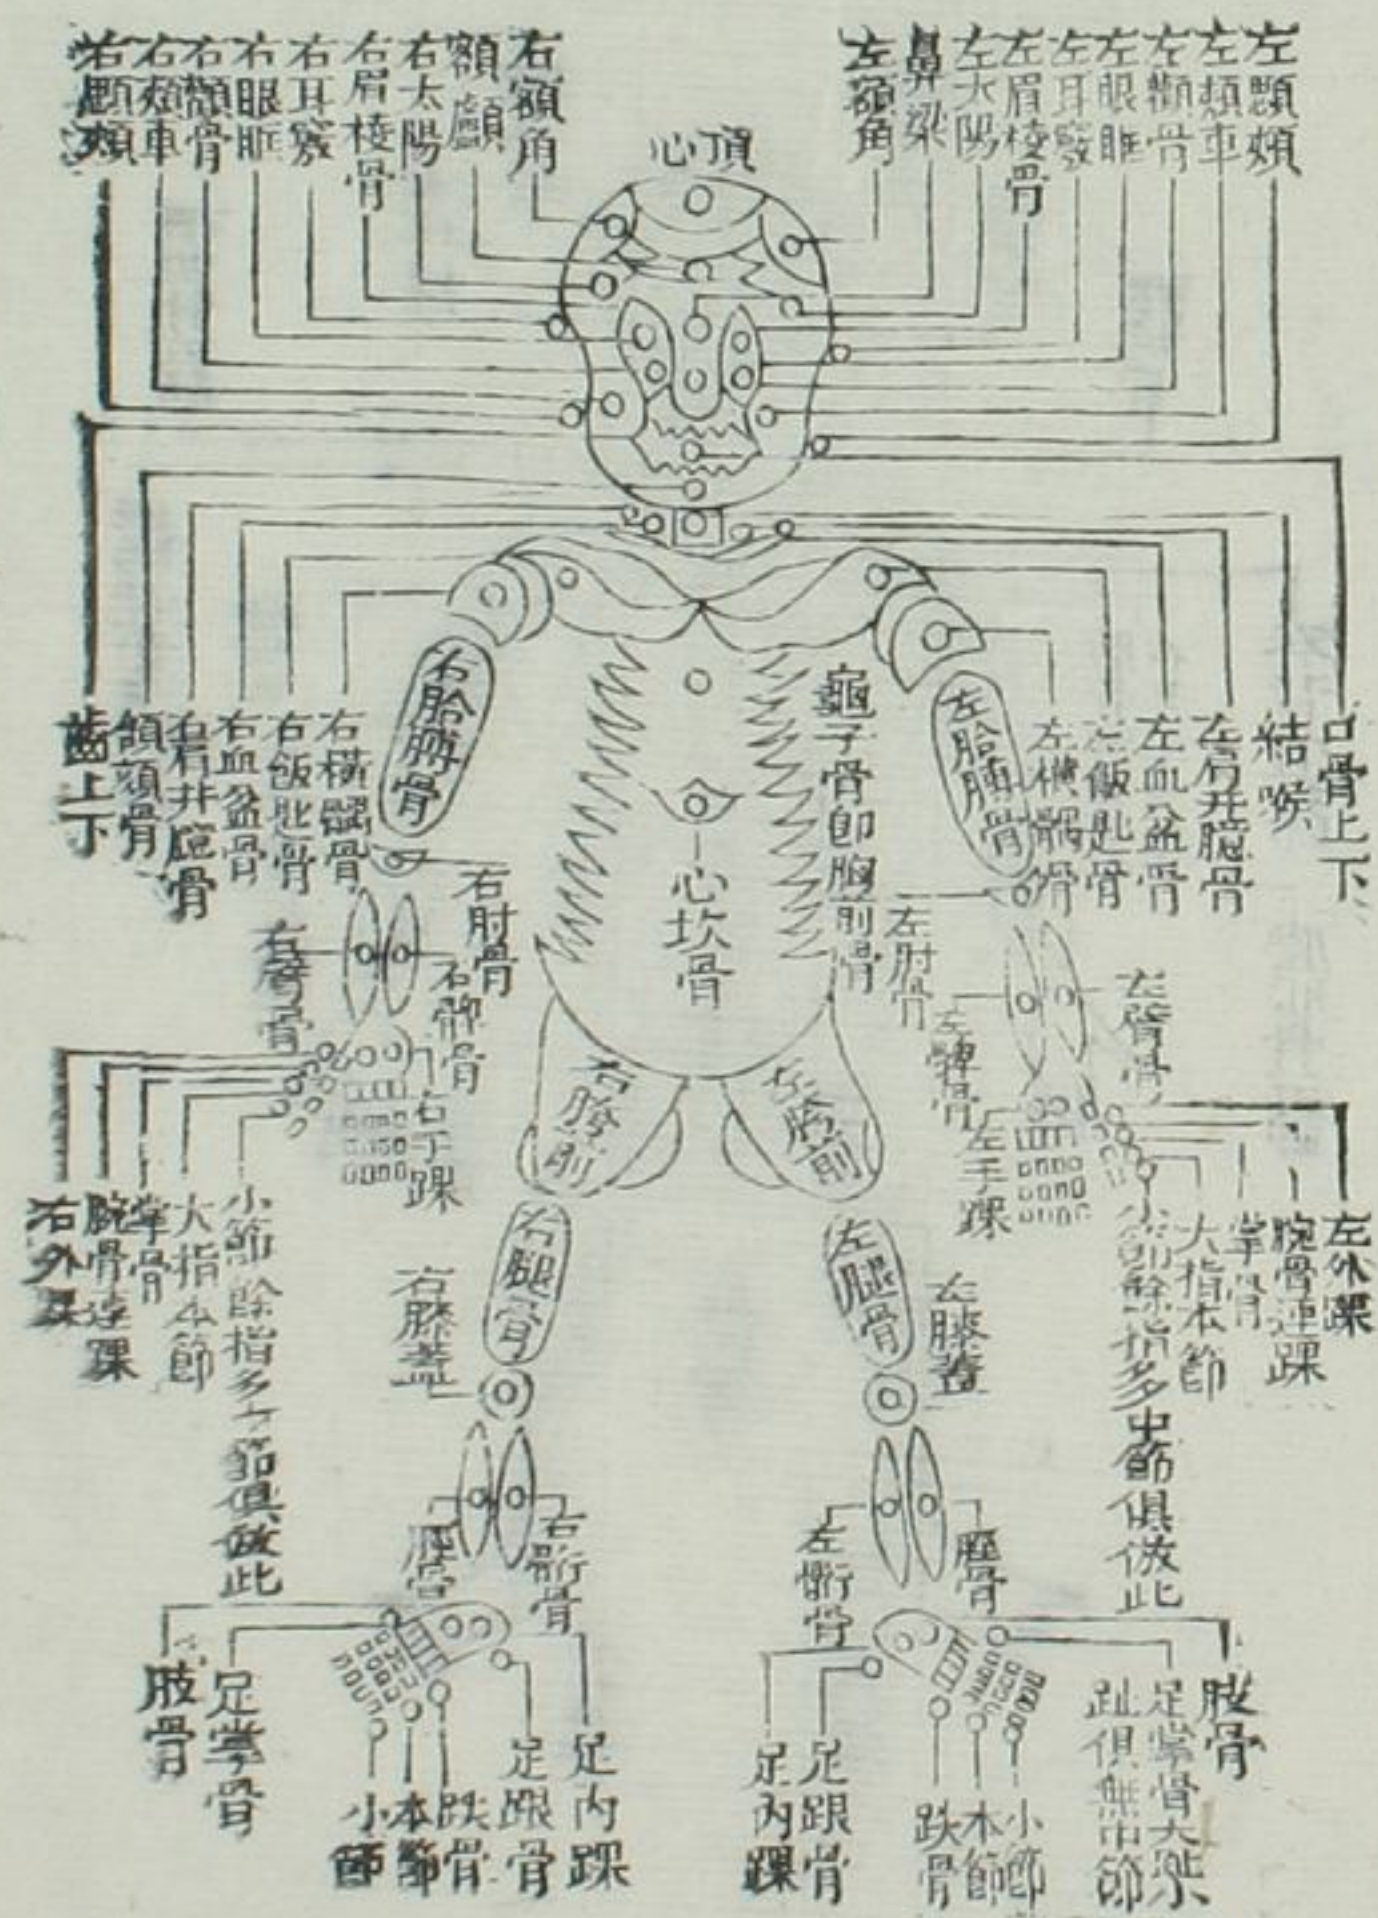 左顋頰
左頰車
左顴骨
左眼眶
左耳竅
左眉棱骨
左太陽
鼻梁
左額角
心頂
右額角
額顱
右太陽
右眉棱骨
右耳竅
右眼眶
右顴骨
右頰車
右顋頰
口骨上下
結喉
左肩井臆骨
左血盆骨
左飯匙骨
左橫髃骨
左胳膊骨
龜子骨卽胸前骨
心坎骨
右胳膊骨
右橫髃骨
右飯匙骨
右血盆骨
右肩井臆骨
頷頦骨
齒上下
左肘骨
左臂骨
左髀骨
右肘骨
右髀骨
右臂骨
左手踝
右手踝
左胯前
右胯前
左外踝
腕骨連踝
掌骨
大指本節
小節餘指多中節俱倣此
左膝蓋
左腿骨
右腿骨
右膝蓋
小節餘指多中節俱倣此
大指本節
掌骨
腕骨連踝
右外踝
脛骨
左䯒骨
右䯒骨
脛骨
肢骨
足掌骨大趾
趾俱無中節
小節
本節
趺骨
足跟骨
足內踝
足內踝
足跟骨
趺骨
本節
小節
足掌骨
肢骨